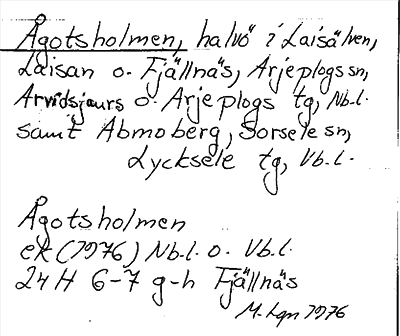 Ågotsholmen, halvö i Laisälven,
Laisan o. Fjällnäs, Arjeplogs sn,
Arvidsjaurs o. Arjeplogs tg, Nb.l.
samt Abmoberg, Sorsele sn,
Lycksele tg, Vb.l.
Ågotsholmen
ek (1976) Nb.l. o. Vb.l.
24 H 6-7 g-h Fjällnäs
M. Lgn 1976